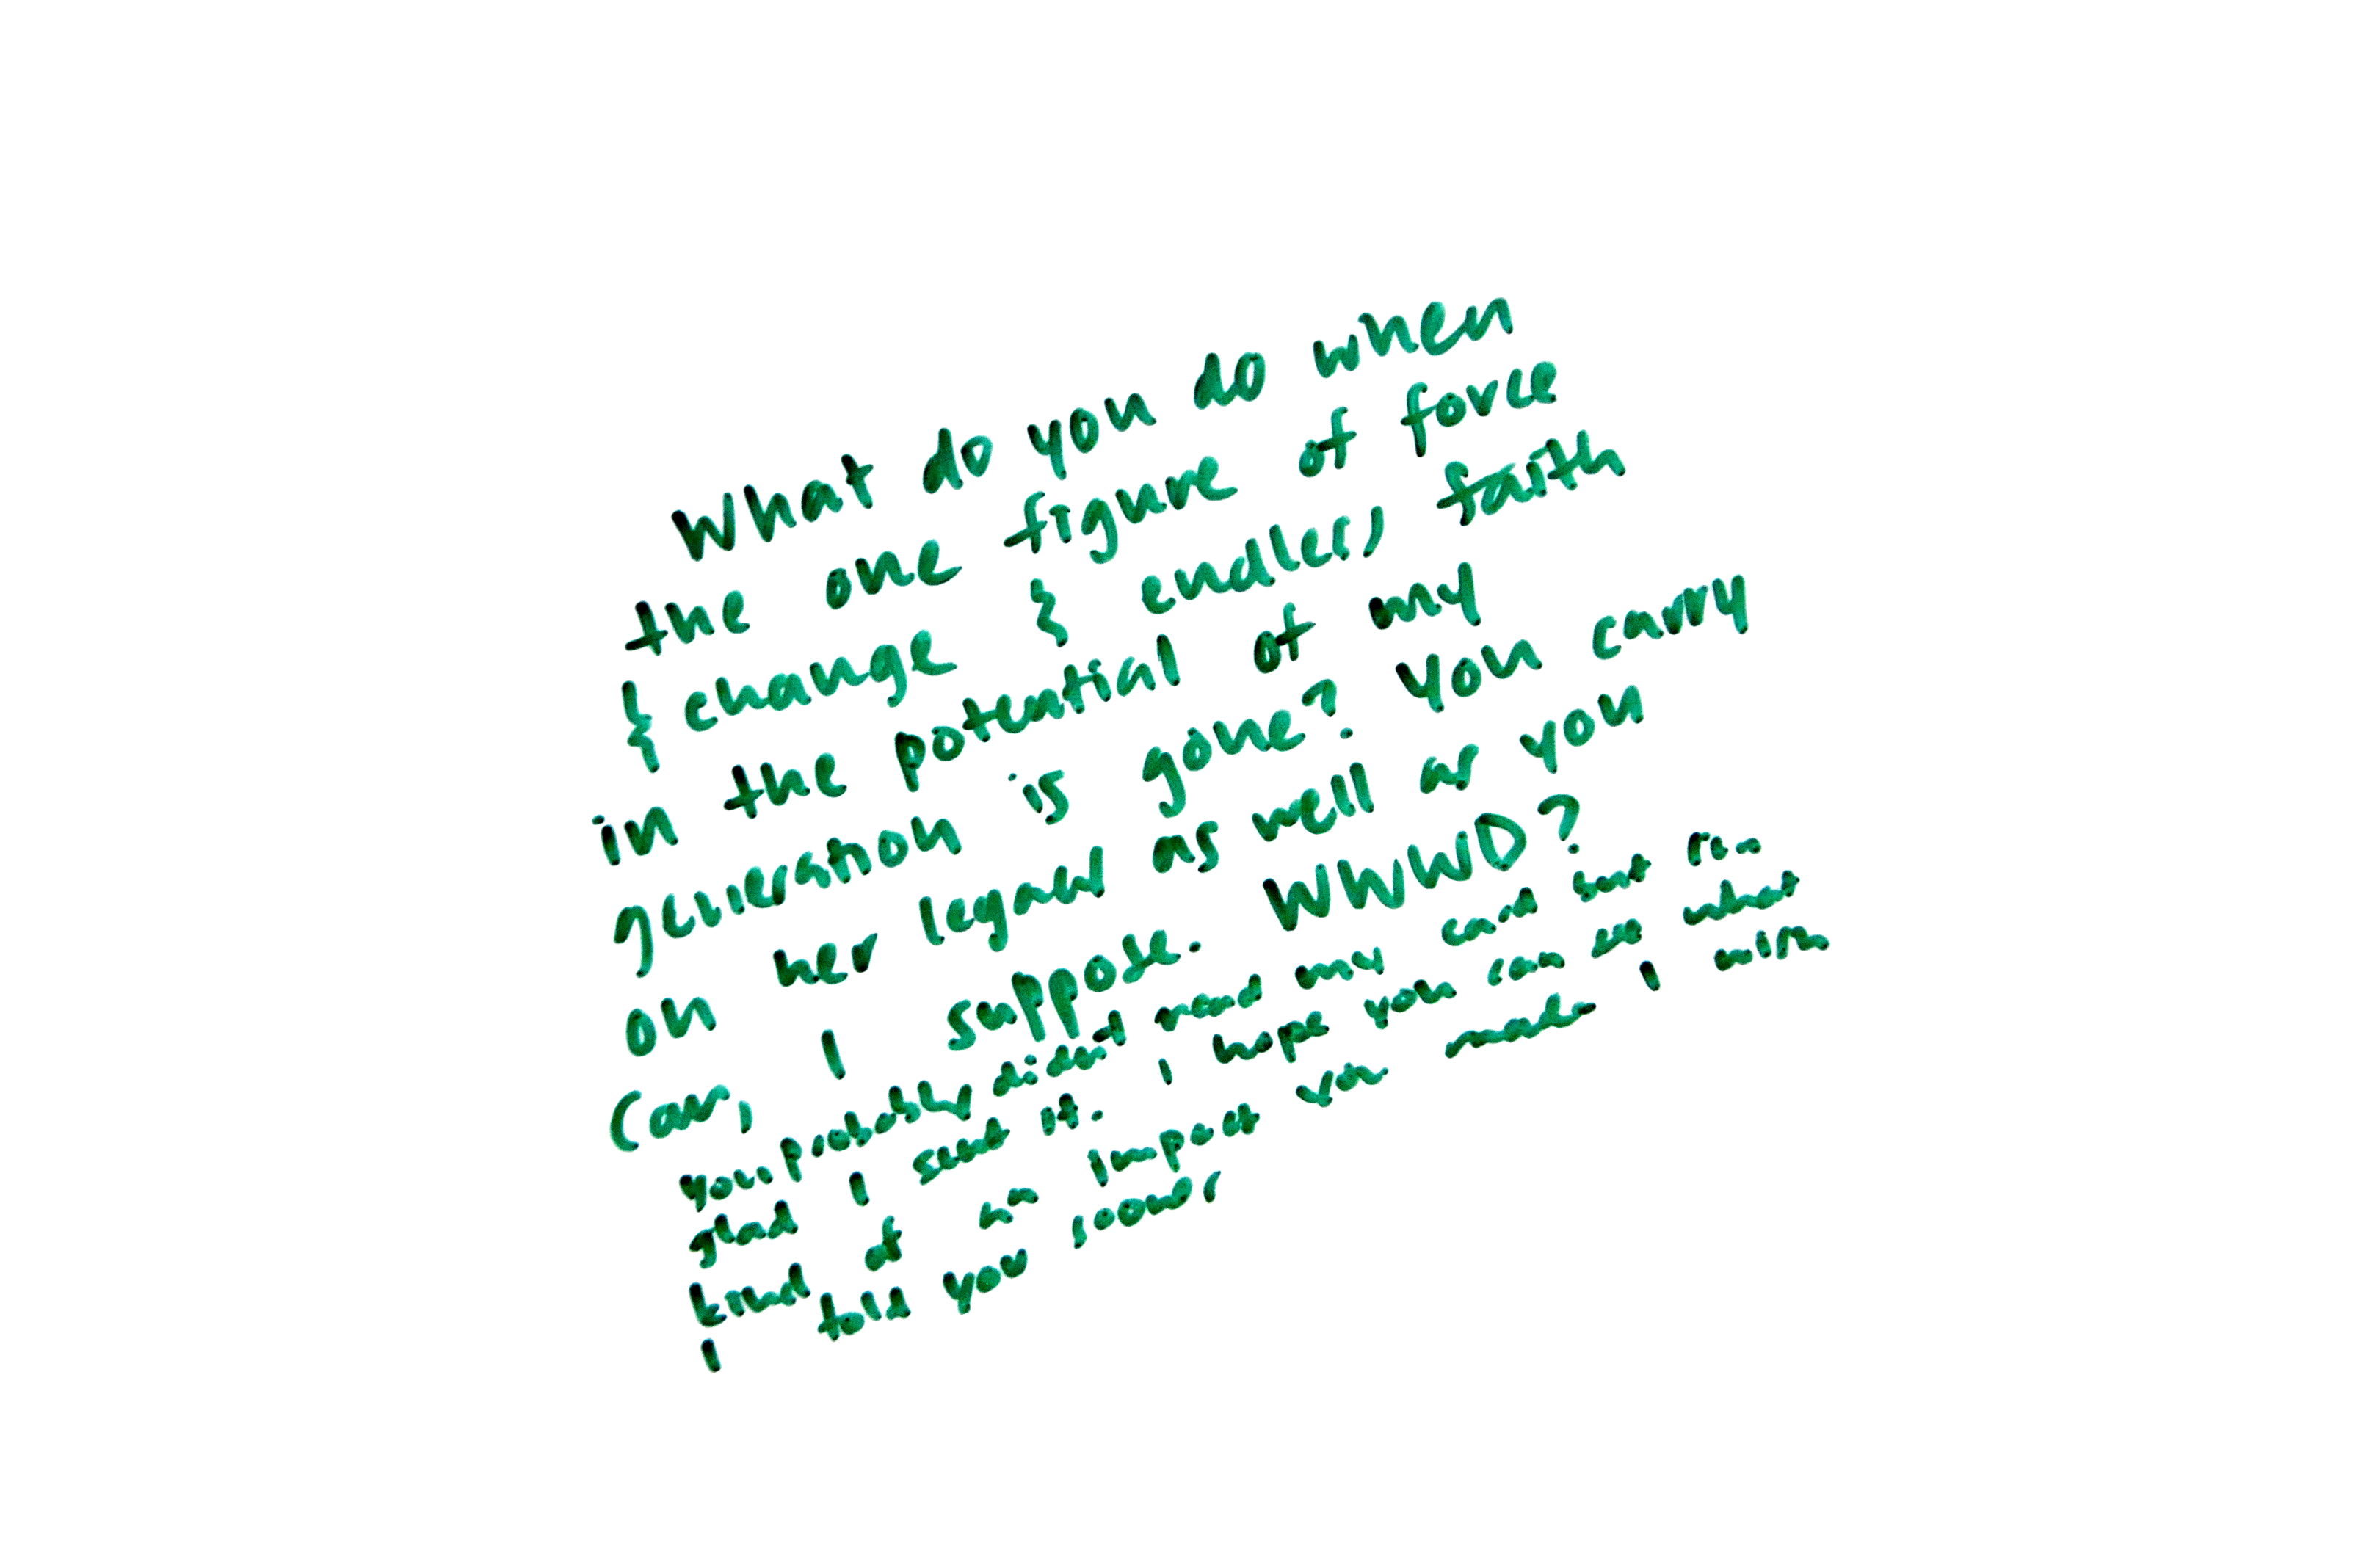 What do you do when
the one figure of force
& change & endless faith
in the potential of my
generation is gone? You carry
on her legacy as well as you
can, I suppose. WWWD?
you probably didn't read my card but I'm
glad I sent it. I hope you can see what
kind of an impact you made. I wish
I told you sooner